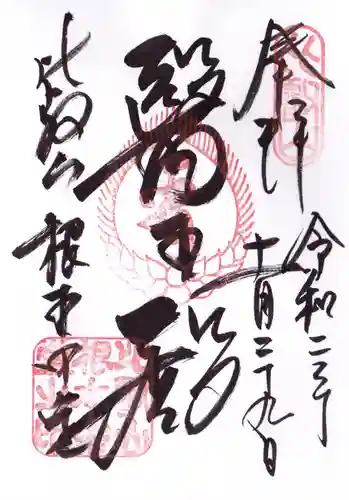 奉拝
令和二年
十一月二十九日
醫王殿
比叡山
根本中堂